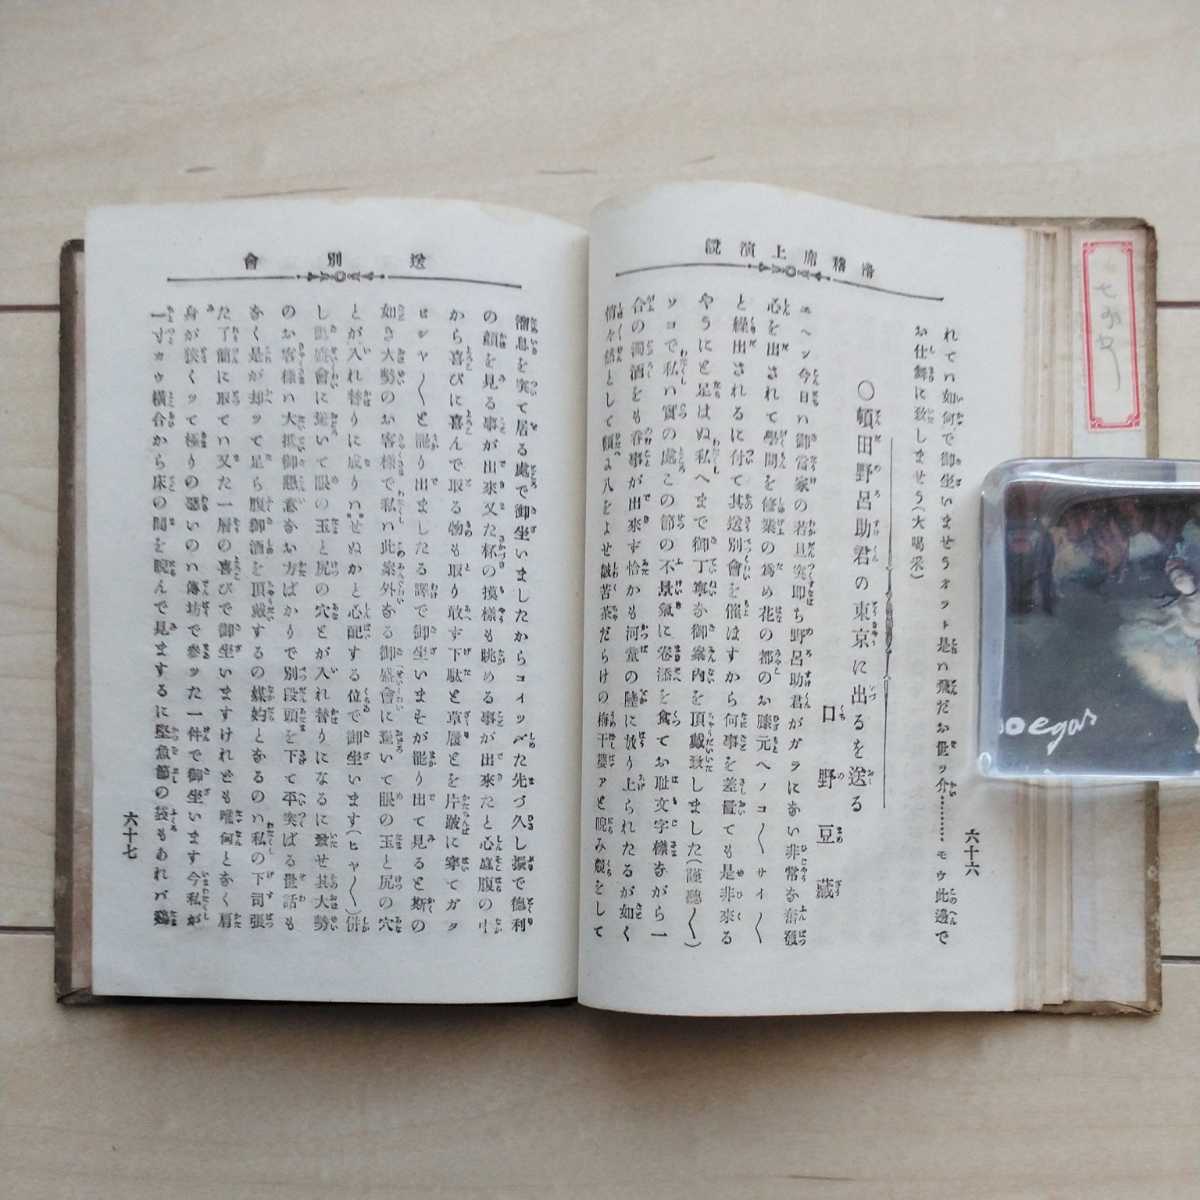 滑稽席上演説
六十六
れてハ如何で御坐いませうオット是ハ飛だお世ッ介………モウ此邊で
お仕舞に致しませう(大喝采)
○頓田野呂助君の東京に出るを送る
口野豆藏
エヘン今日ハ御當家の若旦那即ち野呂助君がガラにあい非常な奮發
心を出されて學問を修業の爲め花の都のお膝元へノコ〱サイ〱
と繰出されるに付て其送別會を催はすから何事を差置ても是非來る
やうにと足はぬ私へまで御丁寧な御案内を頂戴致しました(謹聽〱)
ソコで私ハ實の處この節の不景氣に
合の濁酒をも呑事が出來ず恰かも河童の陸に放り上られたるが如く
として額に八をよせ澁苦茶だらけの梅干婆アと睨み競をして
送別會
溜息を突て居る處で御坐いましたからコイツハた先づ久し振で德利
の顏を見る事が出來又た杯の摸樣も眺める事が出來たと心底腹の中
から喜びに喜んで取る物も取り敢ず下駄と草履とを片跛に穿てガタ
ヒシャ〱と罷り出ましたる譯で御坐いまそが罷り出て見ると斯の
如き大勢のお客樣で私ハ此案外なる御盛會に驚いて眼の玉と尻の穴
とが入れ替りに成りハせぬかと心配する位で御坐います(ヒヤ〱)併
し御盛會に驚いて眼の玉と尻の穴とが入れ替りになるに致せ其大勢
のお客樣ハ大抵御懇意なお方ばかりで別段頭を下て平突ばる世話も
なく是が却ッて足ら腹御酒を頂戴するの媒妁となるのハ私の下司張
た了簡に取てハ又た一層の喜びで御坐いますけれども唯何となく肩
身が狹くッて極りの惡いのハ傳坊で參ッた一件で御坐います今私が
一寸カウ橫合から床の間を睨んで見ますするに堅魚節の袋もあれバ鷄
六十七